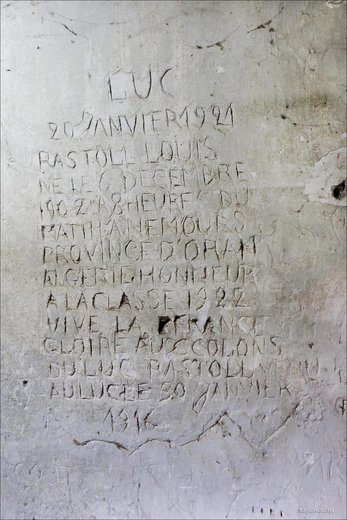 LUC
20 JANVIER 1921
PASTOLL LOUIS
NE LE 6 DECEMBRE
1902 A 8 HEURES DU
MATIN A NEMOURS
PROVINCE D'ORAN
ALGERI D HONNEUR
A LA CLASSE 1922
VIVE LA FRANCE
GLOIRE AUX COLONS
DU LUC PASTOLL
AU LUC LE 30 JANVIER
1916